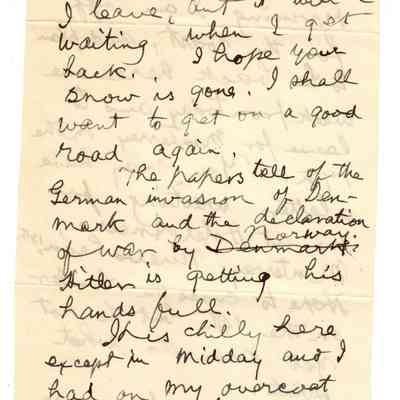 I leave, but I
waiting when I get
back. I hope your
snow is gone. I shall
want to get on a good
road again.
The papers tell of the
German invasion of Den-
mark and the declaration
of war by Denmark. Norway.
Hitler is getting his
hands full.
It is chilly here
except in midday and I
had on my overcoat